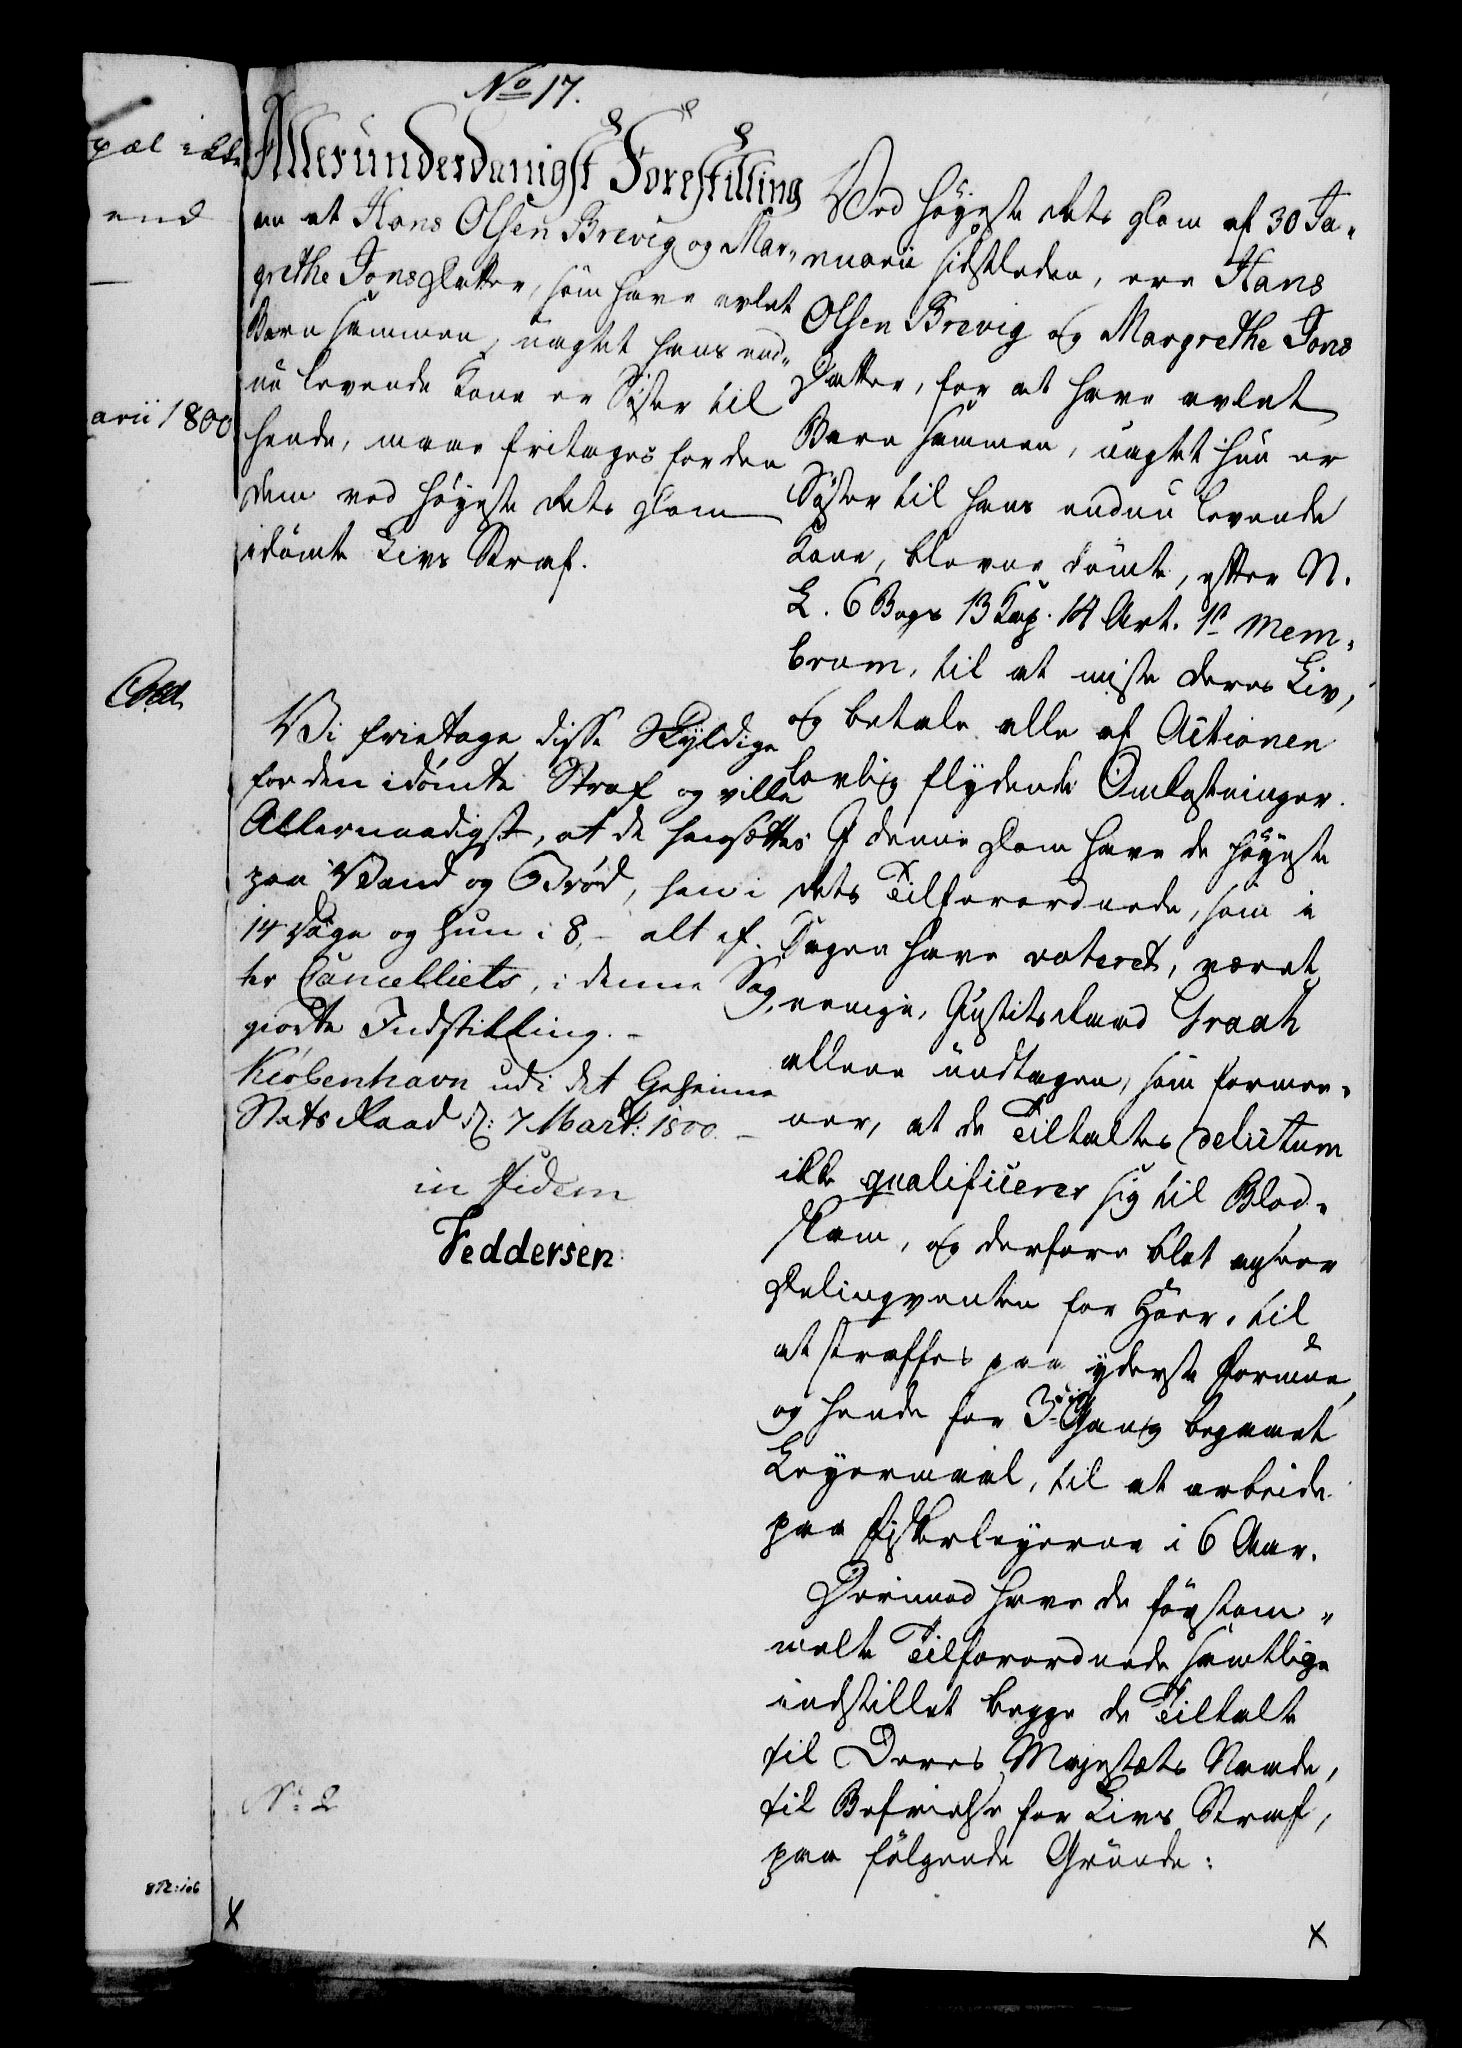 No 17.
Allerunderdanigst Forestilling
om at Hans Olsen Brevig og Mar-
grethe Jonsdatter, som have avlet
Barn sammen, uagtet hans end-
nu levende Kone er Søster til
hende, maae fritages for den
dem ved Høyeste Rets Dom
idømte Livs Straf.
Vi fritage disse Skyldige
for den idømte Straf og ville
Allernaadigst, at de hensættes
paa Vand og Brød, han i
14 Dage og hun i 8, - alt ef-
ter Cancelliets, i denne Sag,
giorte Indstilling. -
Kiøbenhavn udi det Geheime
Stats Raad d: 7 Mart: 1800. -
in fidem
Feddersen
No 2
Ved Høyeste Rets Dom af 30 Ja-
nuarii sidstleden, ere Hans
Olsen Brevig og Margrethe Jons
Datter, for at have avlet
Barn sammen, uagtet hun er
Søster til hans endnu levende
Kone, blevne dømte, efter N.
L. 6 Bogs 13 Kap. 14 Art. 1ste Mem-
brum, til at miste deres Liv,
og betale alle af Actionen
lovlig flydende Omkostninger.
I denne Dom have de Høyeste
Rets Tilforordnede, som i
Sagen have voteret, været
eenige, Justitsraad Graah
allene undtagen, som formee-
ner, at de Tiltaltes delictum
ikke qualificerer sig til Blod-
skam, og derfore blot ansees
Delinqventen for Hoer, til
at straffes paa yderste Formue,
og hende for 3die Gang begaaet
Leyermaal, til at arbeide
paa Fiskerleyerne i 6 Aar.
Derimod have de førstom-
meldte Tilforordnede samtlige
indstillet begge de Tiltalte
til Deres Majestæts Naade,
til Befrielse for Livs Straf,
paa følgende Grunde:
ikke
end
arii 1800